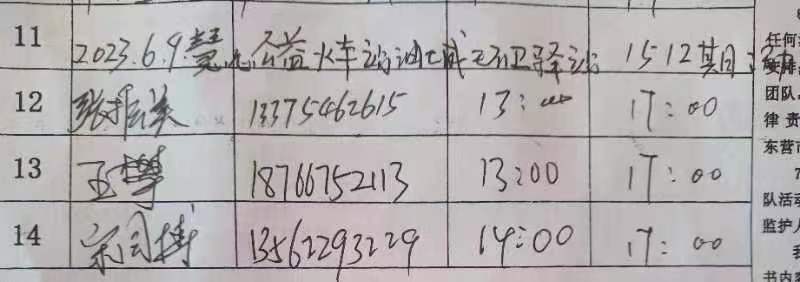 11 2023.6.9.慧心公益火车站油城环卫驿站 1512期
12 张振美 13375462615 13:00 17:00
13 王 18766752113 13:00 17:00
14 宋同博 13562293229 14:00 17:00
任何
安排
团队
律 责
东营市
7
队活动
监护人
书内容